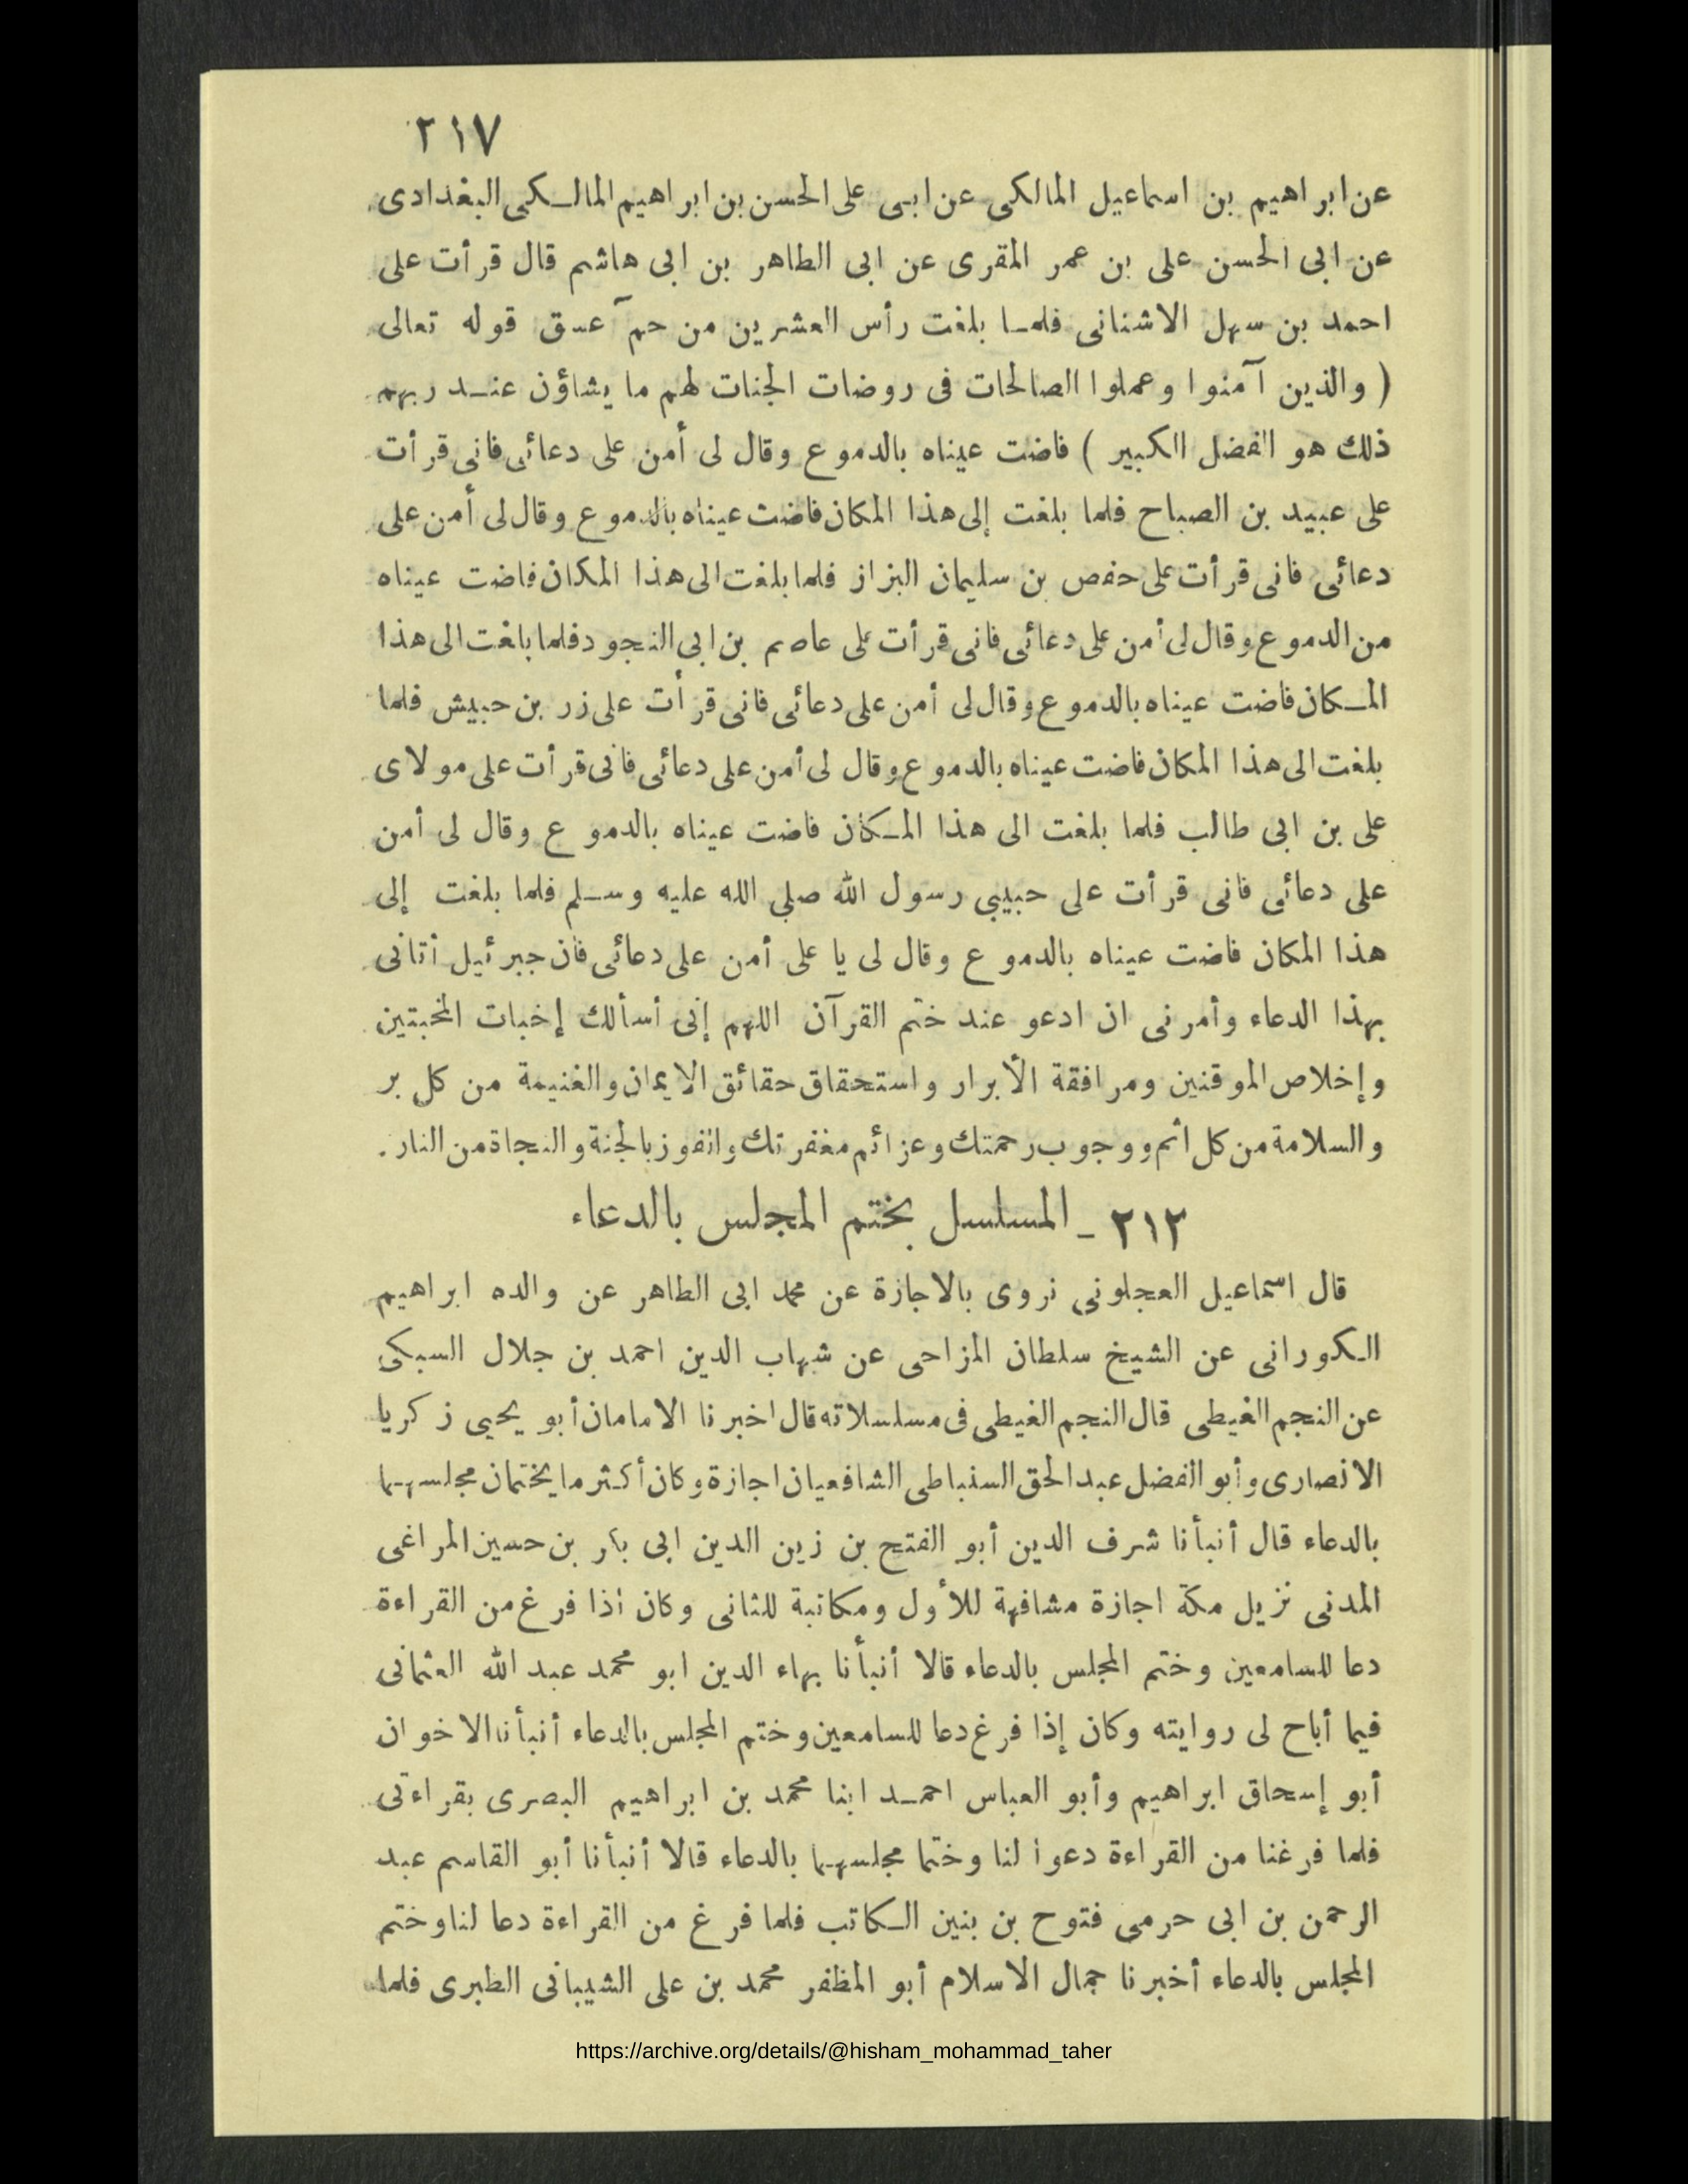 ٢١٧
عن ابراهيم بن اسماعيل المالكى عن ابى على الحسن بن ابراهيم المالكى البغدادى
عن ابى الحسن على بن عمر المقرى عن ابى الطاهر بن ابى هاشم قال قرأت على
احمد بن سهل الاشنانى فلما بلغت رأس العشرين من حمآ عسق قوله تعالى
( والذين آمنوا وعملوا الصالحات فى روضات الجنات لهم ما يشاؤن عند ربهم
ذلك هو الفضل الكبير ) فاضت عيناه بالدموع وقال لى أمن على دعائى فانى قرأت
على عبيد بن الصباح فلما بلغت إلى هذا المكان فاضت عيناه بالدموع وقال لى أمن على
دعائى فانى قرأت على حفص بن سليمان البزاز فلما بلغت الى هذا المكان فاضت عيناه
من الدموع وقال لى أمن على دعائى فانى قرأت على عاصم بن ابى النجود فلما بلغت الى هذا
المكان فاضت عيناه بالدموع وقال لى أمن على دعائى فانى قرأت على زر بن حبيش فلما
بلغت الى هذا المكان فاضت عيناه بالدموع وقال لى أمن على دعائى فانى قرأت على مولاى
على بن ابى طالب فلما بلغت الى هذا المكان فاضت عيناه بالدموع وقال لى أمن
على دعائى فانى قرأت على حبيبى رسول الله صلى الله عليه وسلم فلما بلغت إلى
هذا المكان فاضت عيناه بالدموع وقال لى يا على أمن على دعائى فان جبرئيل أتانى
بهذا الدعاء وأمرنى ان ادعو عند ختم القرآن اللهم إنى أسألك إخبات المخبتين
وإخلاص الموقنين ومرافقة الأبرار واستحقاق حقائق الايمان والغنيمة من كل بر
والسلامة من كل اثم ووجوب رحمتك وعزائم مغفرتك والفوز بالجنة والنجاة من النار .
٢١٢ ـ المسلسل بختم المجلس بالدعاء
قال اسماعيل العجلونى نروى بالاجازة عن محمد ابى الطاهر عن والده ابراهيم
الكورانى عن الشيخ سلطان المزاحى عن شهاب الدين احمد بن جلال السبكى
عن النجم الغيطى قال النجم الغيطى فى مسلسلاته قال اخبرنا الامامان أبو يحيى زكريا
الانصارى وأبو الفضل عبد الحق السنباطى الشافعيان اجازة وكان أكثر ما يختمان مجلسهما
بالدعاء قال أنبأنا شرف الدين أبو الفتح بن زين الدين ابى بكر بن حسين المراغى
المدنى نزيل مكة اجازة مشافهة للأول ومكاتبة للثانى وكان إذا فرغ من القراءة
دعا للسامعين وختم المجلس بالدعاء قالا أنبأنا بهاء الدين ابو محمد عبد الله العثمانى
فيما أباح لى روايته وكان إذا فرغ دعا للسامعين وختم المجلس بالدعاء أنبأنا الاخوان
أبو إسحاق ابراهيم وأبو العباس احمد ابنا محمد بن ابراهيم البصرى بقراءتى
فلما فرغنا من القراءة دعوا لنا وختما مجلسهما بالدعاء قالا أنبأنا أبو القاسم عبد
الرحمن بن ابى حرمى فتوح بن بنين الكاتب فلما فرغ من القراءة دعا لنا وختم
المجلس بالدعاء أخبرنا جمال الاسلام أبو المظفر محمد بن على الشيبانى الطبرى فلما
https://archive.org/details/@hisham_mohammad_taher